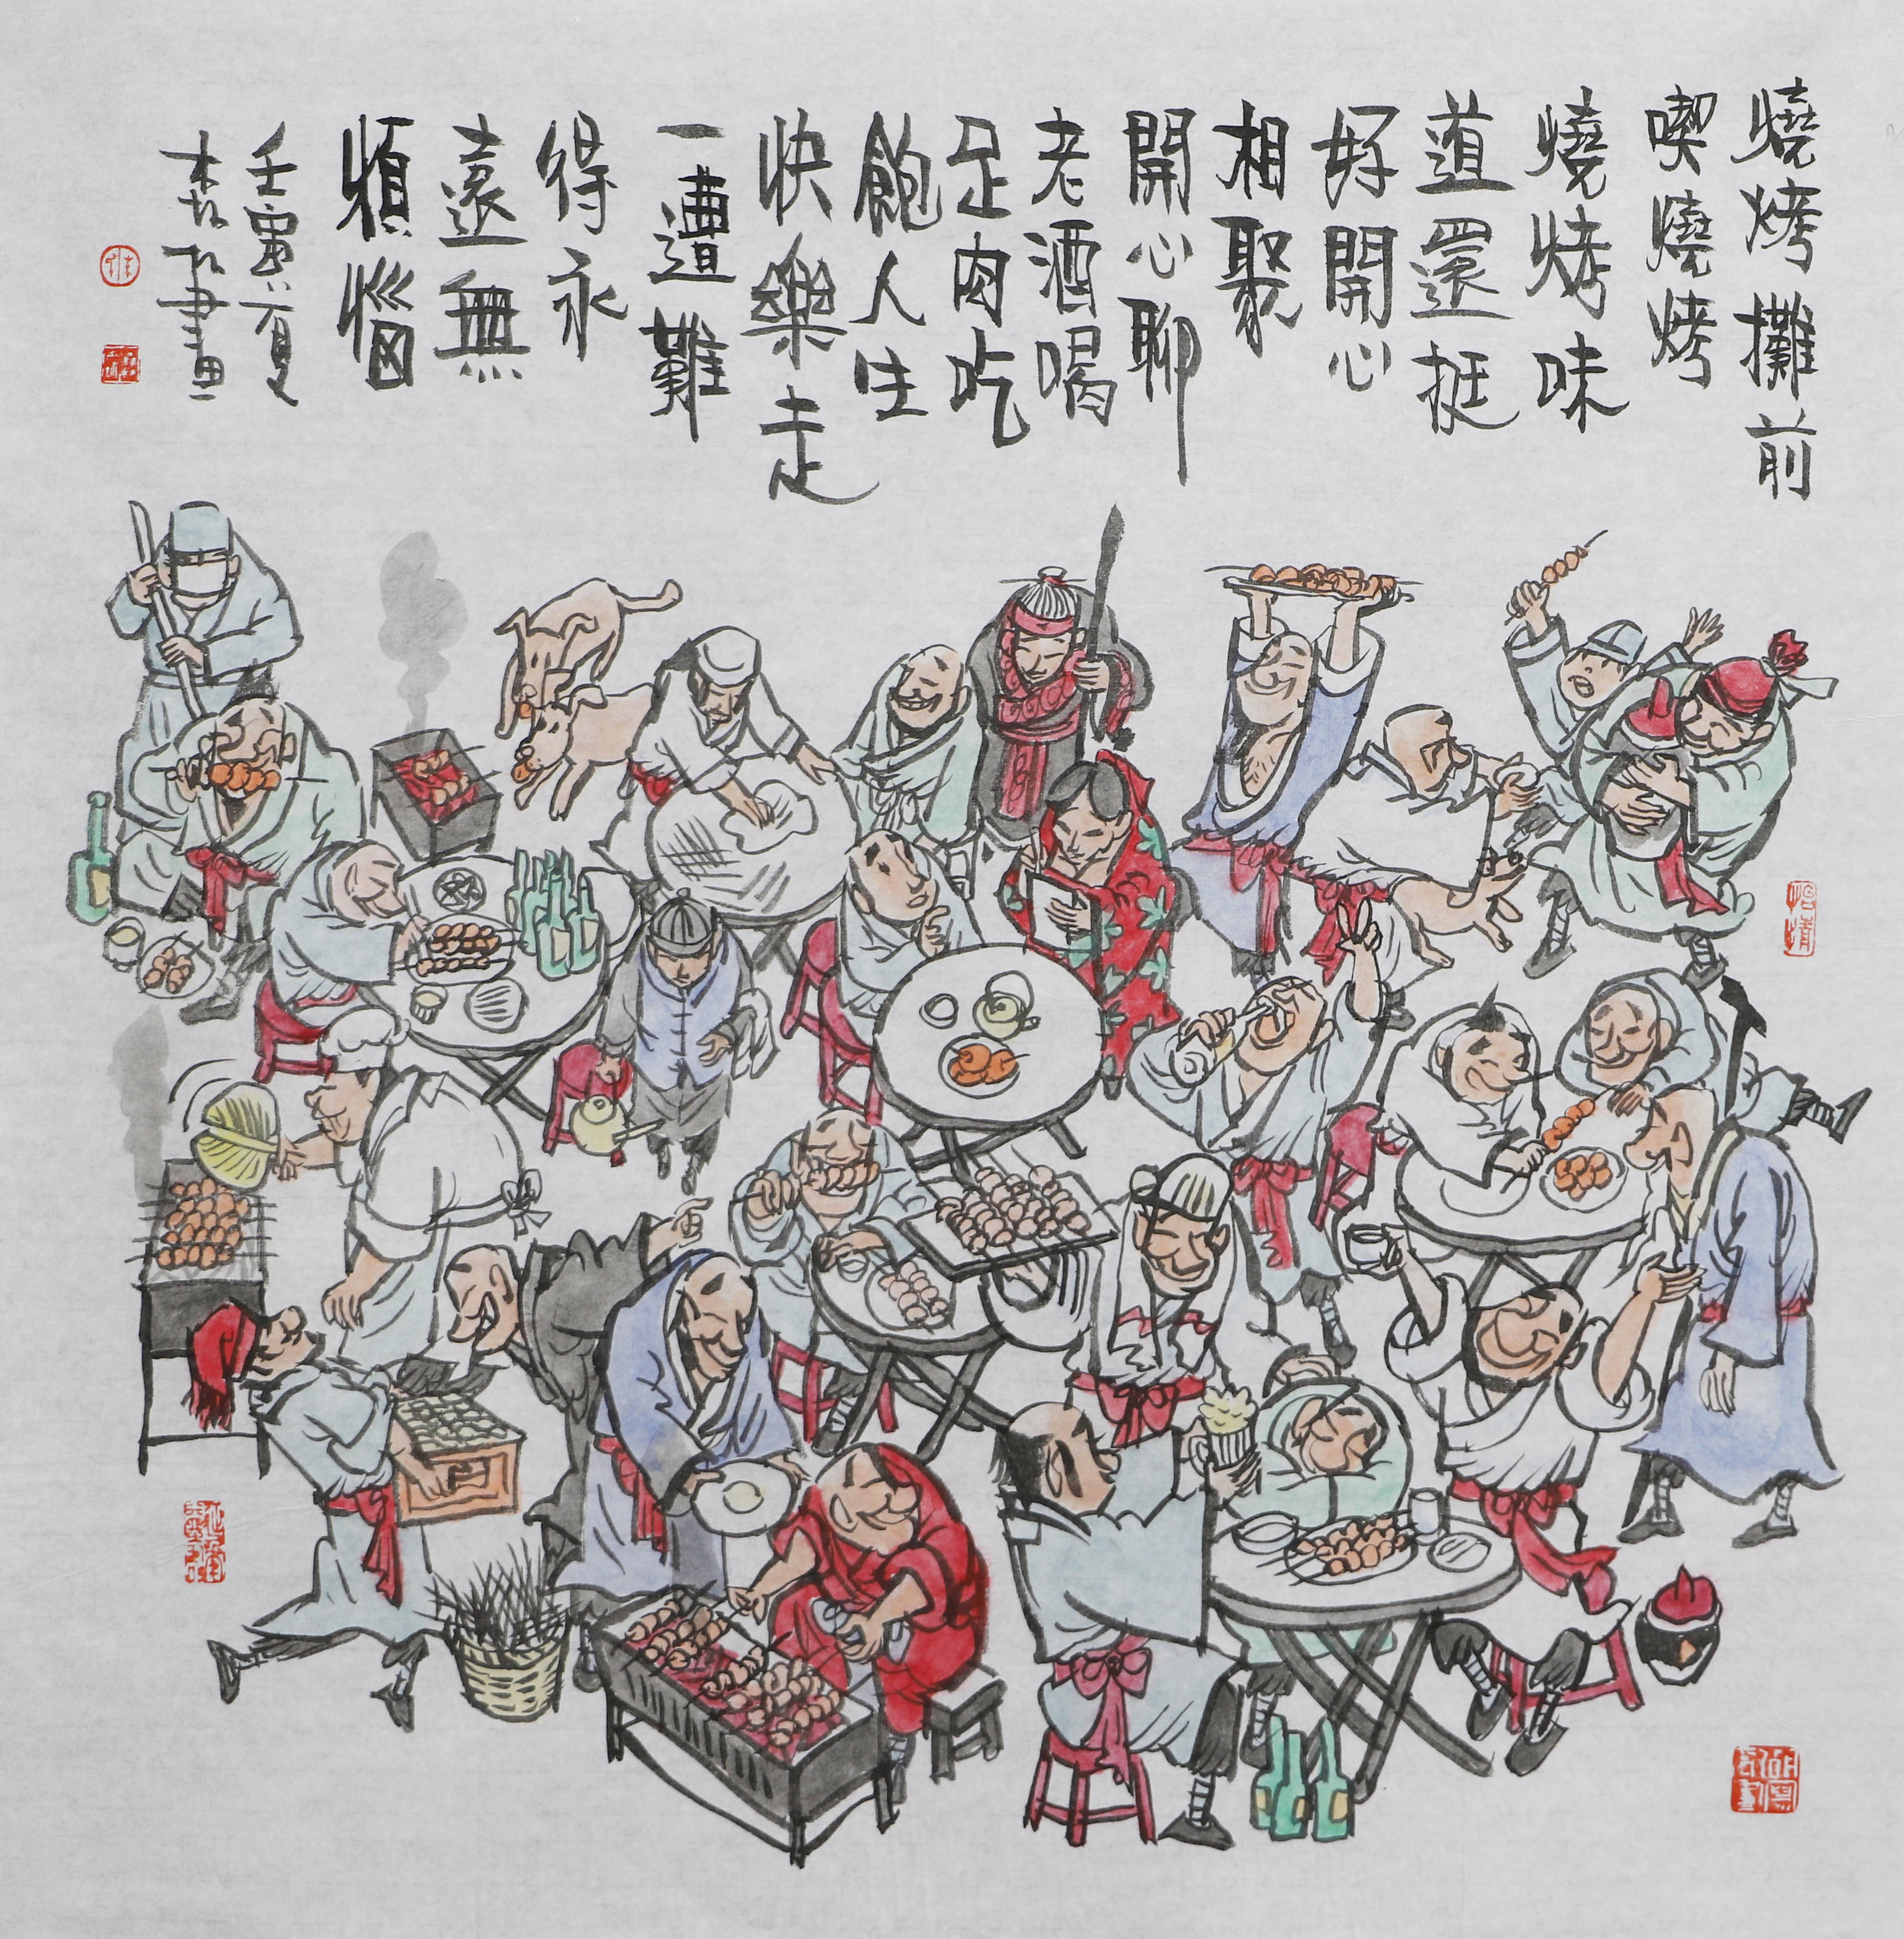 燒烤攤前
喫燒烤
燒烤味
道還挺
好開心
相聚
開心聊
老酒喝
足肉吃
飽人生
快樂走
一遭難
得永
遠無
煩惱
壬寅夏